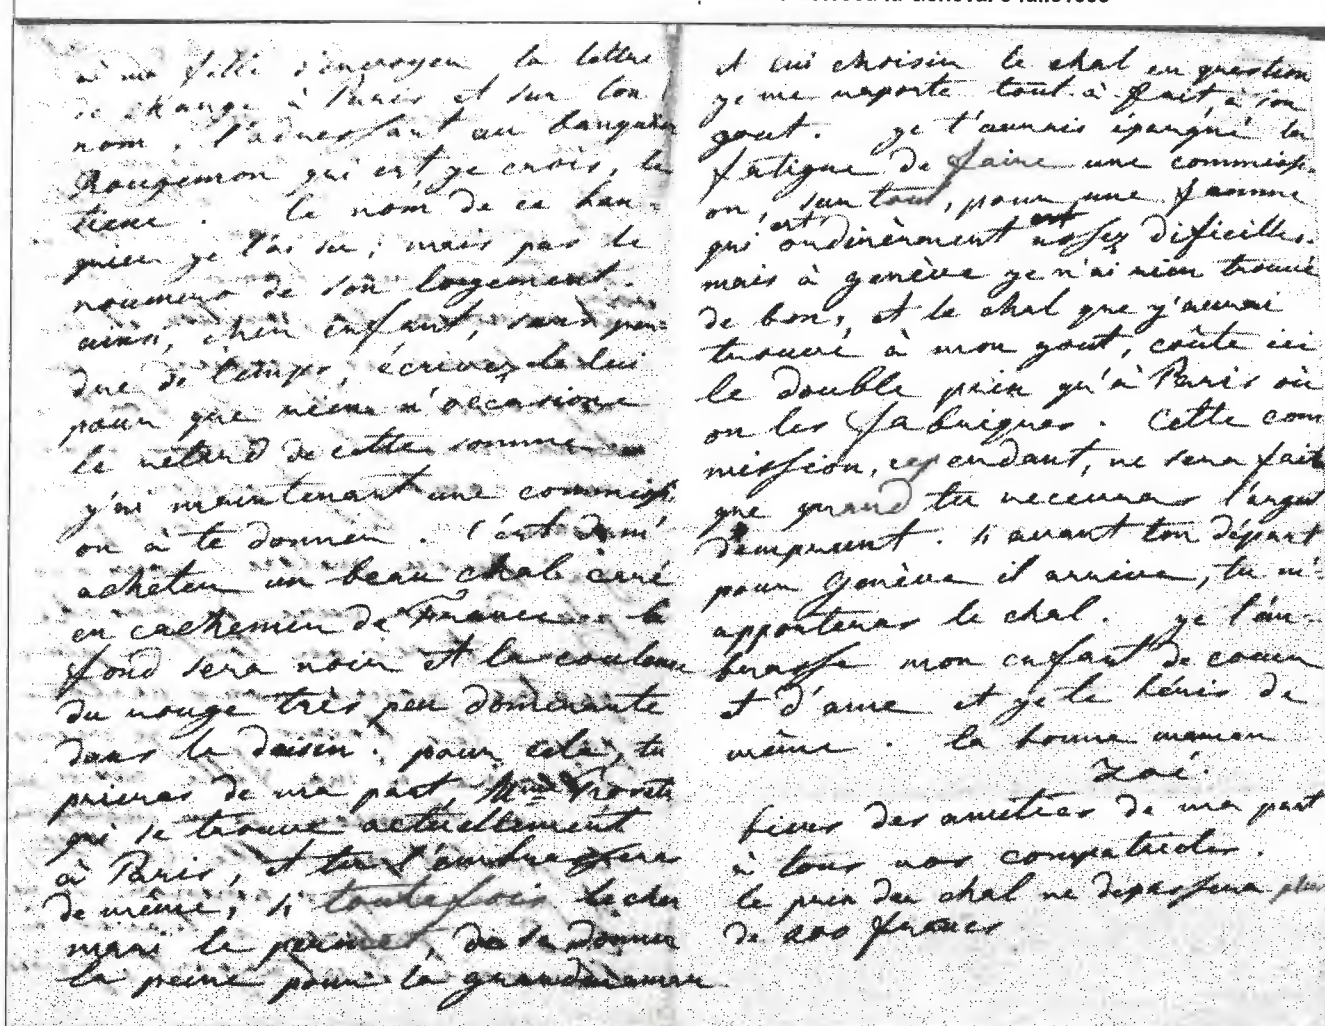 à ma fille d'envoyen la lettre
de change à Paris et sur ton
nom, l'adressant au banquier
Rougemon qui est ye crois, le
tiene. le nom de ce ban-
quier ye l'ai su, mais pas le
noumero de son logement.
ainsi, cher enfant, sans per-
dre de temps, écrivez le lui
pour que rien n'occasione
le retard de cette somme
y'ai maintenant une commissi
on à te donner. C'est de m'
acheter un beau chal carré
en cachemir de France le
fond sera noir et la couleur
du rouge très peu dominante
dans le dessin. pour cela, tu
prieras de ma part Mme
qui se trouve actuellement
à Paris, et tu l'embrasseras
de même, si toutefois le cher
mari le permet, de se donner
la peine pour ta grandmaman
et lui choisir le chal en question
ye me raporte tout à fait, à son
gout. ye t'aurais épargné la
fatigue de faire une commissi-
on, sur tout, pour une femme
qui est ordinèrement assez dificille.
mais à genève ye n'ai rien trouvé
de bon, et le chal que y'aurai
trouvé à mon gout, coûte ici
le double prix qu'à Paris où
on les fabriques. Cette com
mission, cependant, ne sera fait
que quand tu recevras l'argent
d'emprunt. si avant ton départ
pour Genève il arrive, tu m'
apporteras le chal. ye t'em-
brasse mon enfant de coeur
et d'ame et ye te bénis de
même. ta bonne maman
Zoé.
biens des amitiés de ma part
à tous nos compatriotes.
le prix du chal ne dépassera plus
de francs